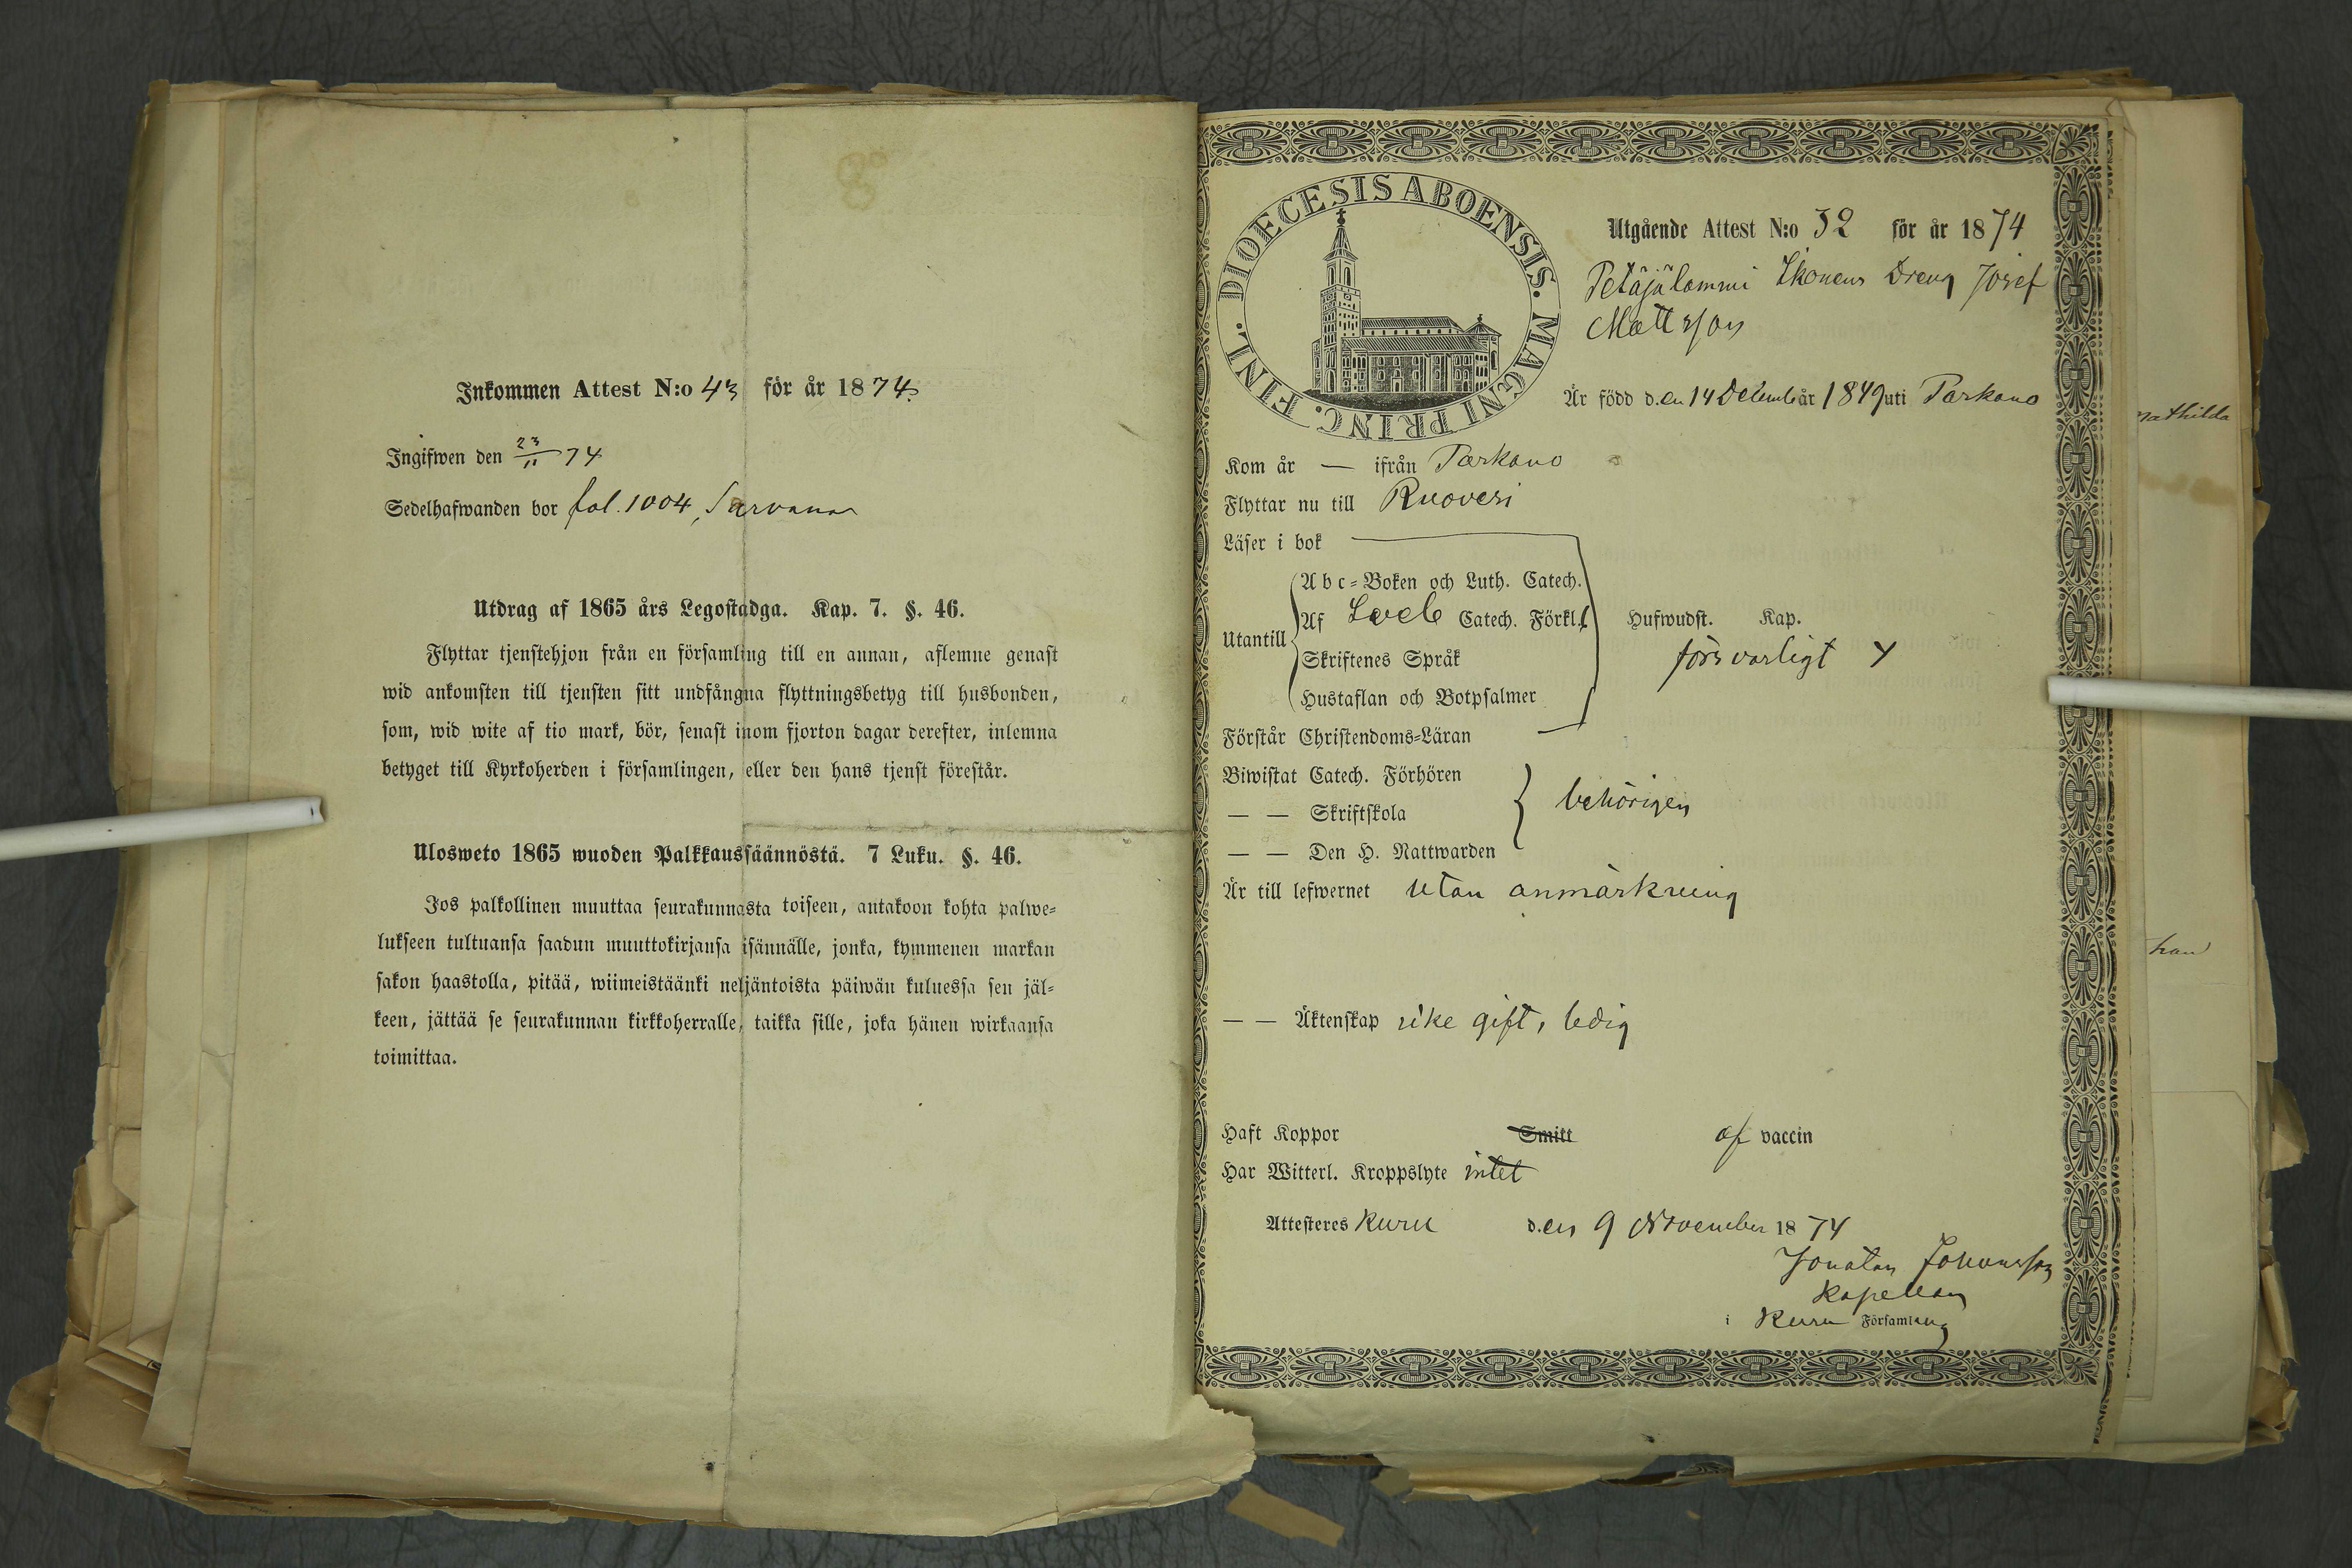 Inkommen Attest N:o 43 för år 1874.
Ingifwen den 23/11 74
Sedelhafwanden bor fol. 1004, Sarvana
Utdrag af 1865 års Legostadga. Kap. 7. §. 46.
Flyttar tjenstehjon från en församling till en annan, aflemne genast
wid ankomsten till tjensten sitt undfångna flyttningsbetyg till husbonden,
som, wid wite af tio mark, bör, senast inom fjorton dagar derefter, inlemna
betyget till Kyrkoherden i församlingen, eller den hans tjenst förestår.
Ulosweto 1865 wuoden Palkkaussäännöstä. 7 Luku. §. 46.
Jos palkollinen muuttaa seurakunnasta toiseen, antakoon kohta palwe=
lukseen tultuansa saadun muuttokirjansa isännälle, jonka, kymmenen markan
sakon haastolla, pitää, wiimeistäänki neljäntoista päiwän kuluessa sen jäl=
keen, jättää se seurakunnan kirkkoherralle, taikka sille, joka hänen wirkaansa
toimittaa.
DIOECESIS ABOENSIS. MAGNI PRINC. FINL.
Utgående Attest N:o 32 för år 1874
Petäjälammi Ikonens Dreng Josef
Mattsson
Är född d.en 14 Decemb år 1849 uti Parkano
Kom år — ifrån Parkano
Flyttar nu till Ruovesi
Läser i bok
Abc=Boken och Luth. Catech.
Utantill Af Catech. Förkl. Hufwudst. Kap.
försvarligt
Skriftenes Språk
Hustaflan och Botpsalmer
Förstår Christendoms=Läran
Biwistat Catech. Förhören
— — Skriftskola behörigen
— — Den H. Nattwarden
Är till lefwernet utan anmärkning
— — Äktenskap icke gift, ledig
Haft Koppor Smitt af vaccin
Har Witterl. Kroppslyte intet
Attesteres Kuru d.en 9 November 1874
Jonatan Johansson
Kapellan
i Kuru Församling
Mathilda
han